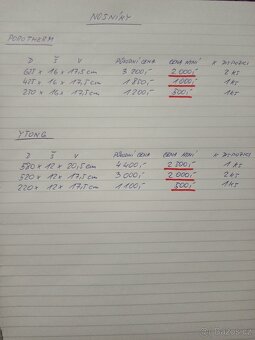 NOSNÍKY
POROTHERM
D Š V PŮVODNÍ CENA CENA NYNÍ K DISPOZICI
625 x 16 x 17,5 cm 3 200,- 2 000,- 2 KS
425 x 16 x 17,5 cm 1 850,- 1 000,- 1 KS
250 x 16 x 17,5 cm 1 200,- 500,- 1 KS
YTONG
D Š V PŮVODNÍ CENA CENA NYNÍ K DISPOZICI
580 x 12 x 20,5 cm 4 400,- 2 500,- 1 KS
520 x 12 x 17,5 cm 3 000,- 2 000,- 2 KS
220 x 12 x 17,5 cm 1 100,- 500,- 1 KS